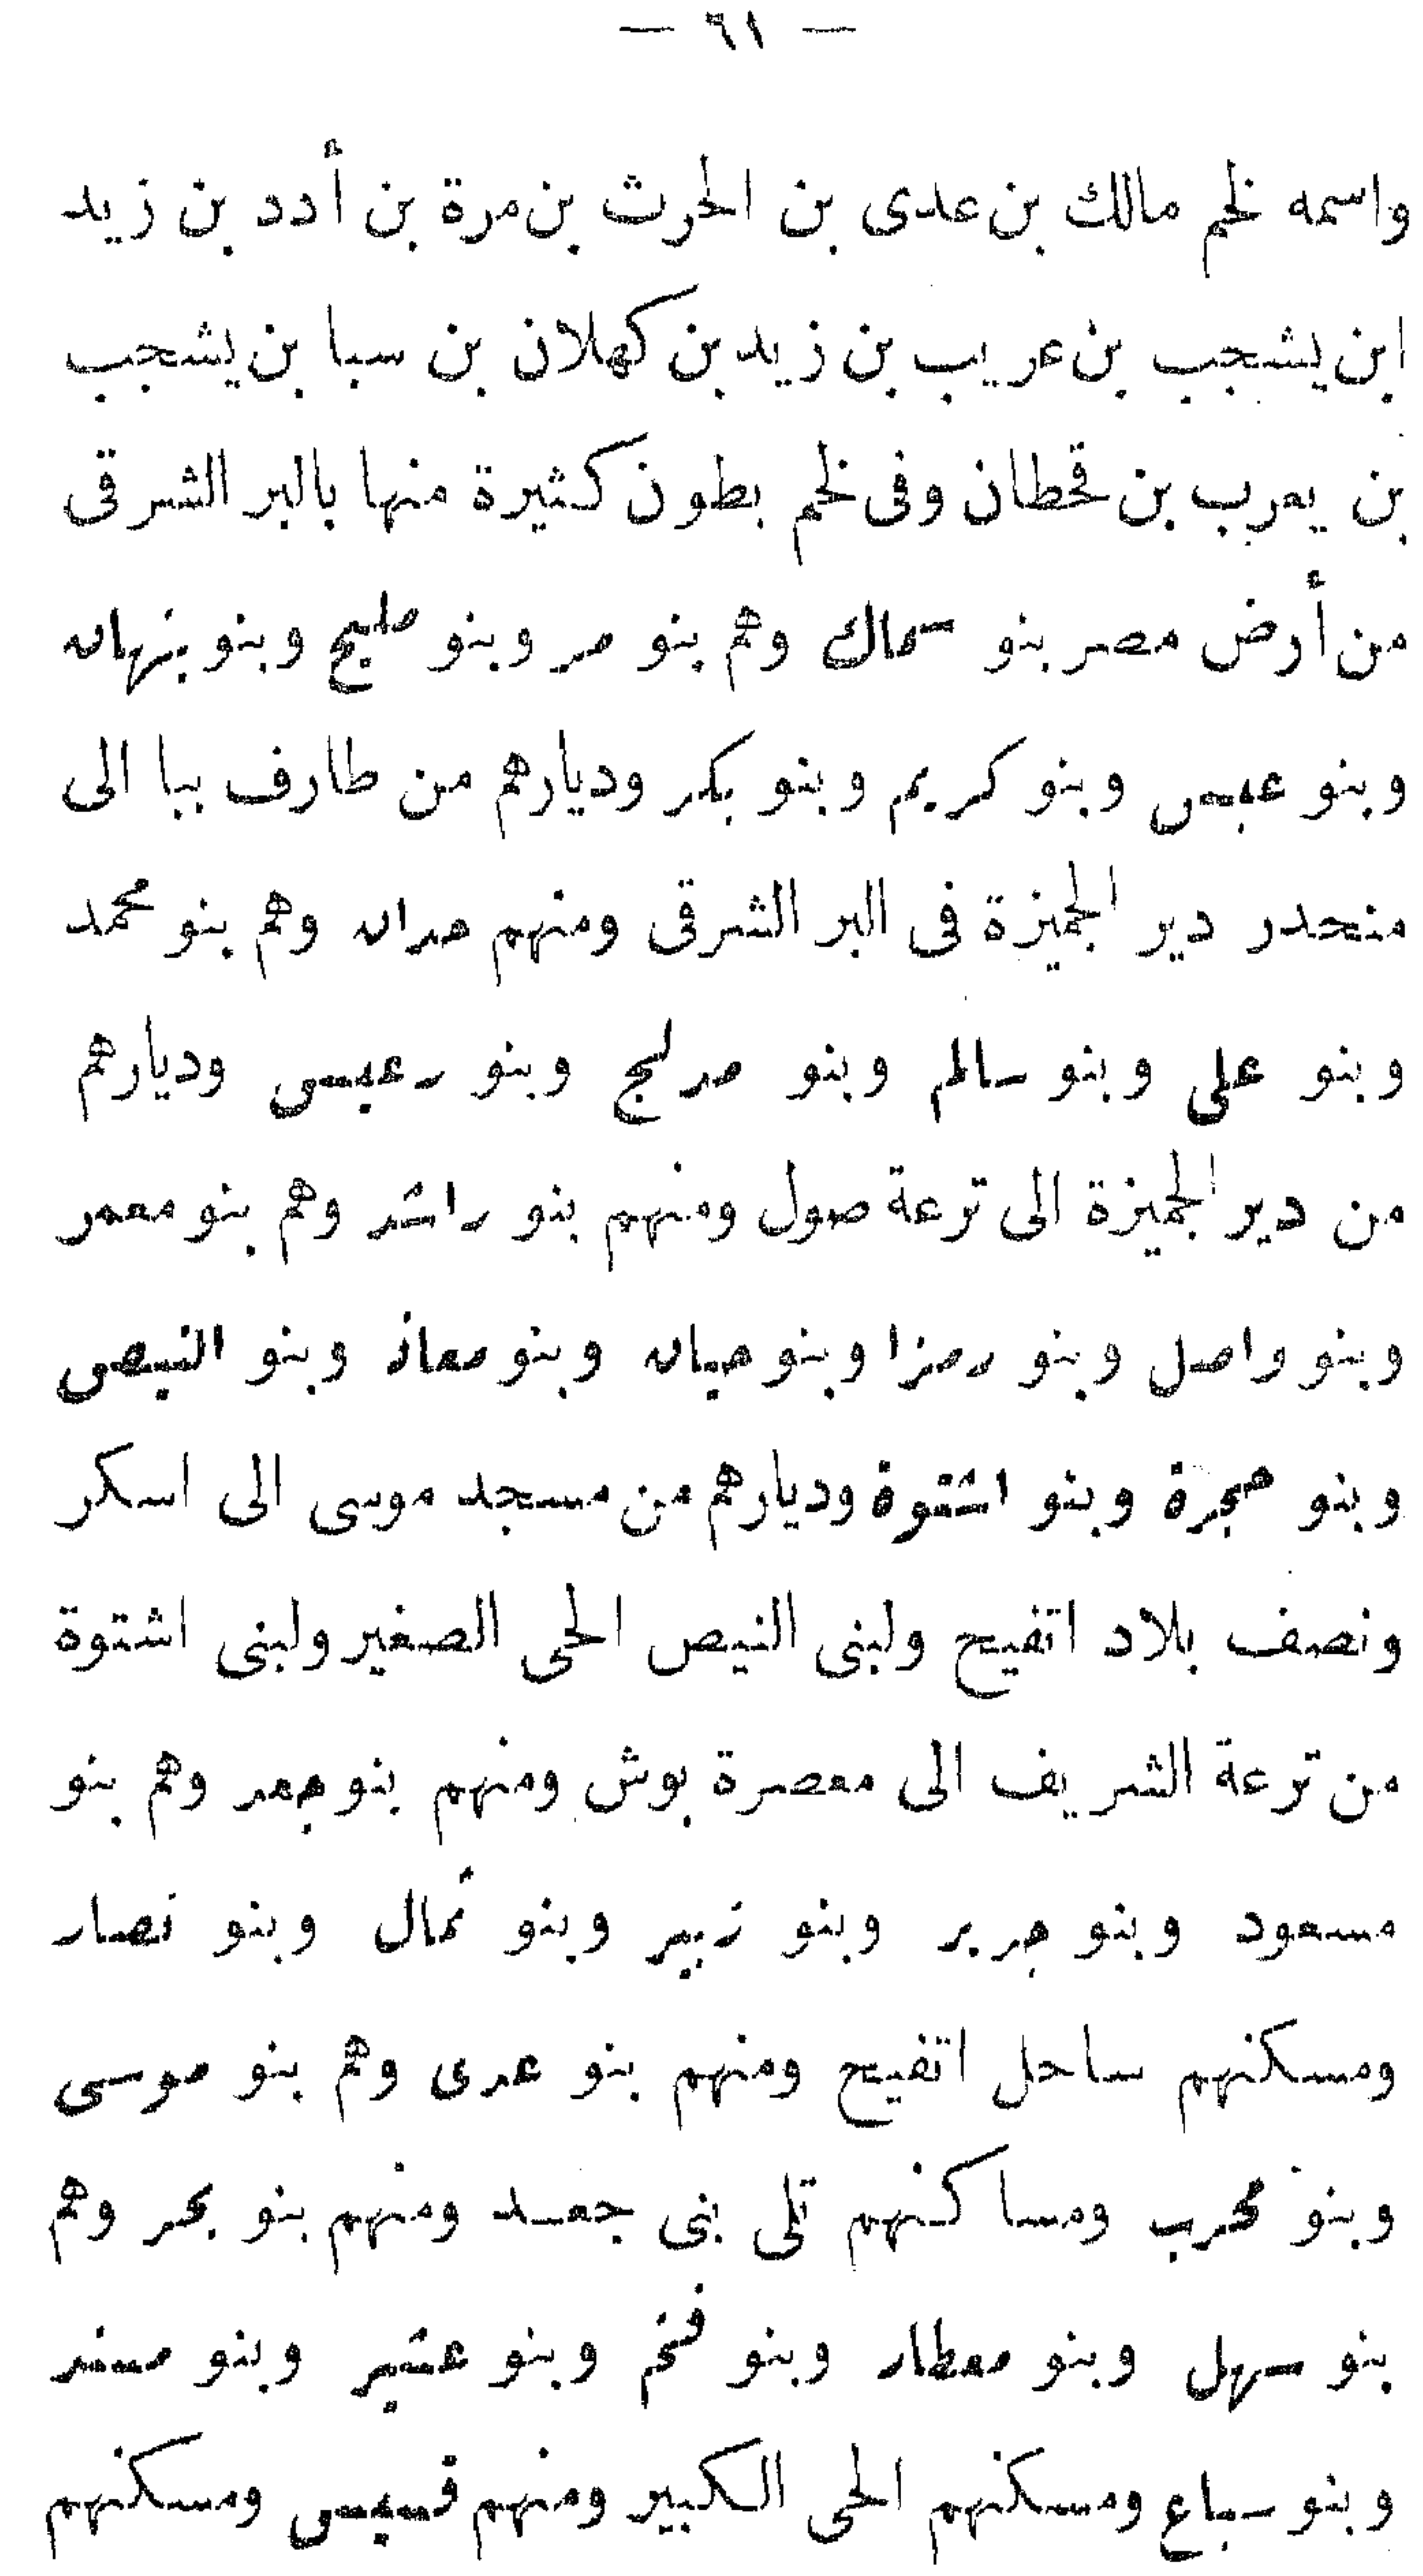 — ٦١ —
واسمه لخم مالك بن عدى بن الحرث بن مرة بن أدد بن زيد
ابن يشجب بن عريب بن زيد بن كهلان بن سبا بن يشجب
بن يعرب بن قحطان وفى لخم بطون كثيرة منها بالبر الشرقى
من أرض مصر بنو سماك وهم بنو مر وبنو مليح وبنو بنهان
وبنو عبس وبنو كريم وبنو بكر وديارهم من طارف ببا الى
منحدر دير الجميزة فى البر الشرقى ومنهم حدان وهم بنو محمد
وبنو على وبنو سالم وبنو مدلج وبنو رعيس وديارهم
من دير الجميزة الى ترعة صول ومنهم بنو راشد وهم بنو معمر
وبنو واصل وبنو رمزا وبنو حبان وبنو معاذ وبنو النيص
وبنو حجرة وبنو اشتوة وديارهم من مسجد موسى الى اسكر
ونصف بلاد اتفيح ولبنى النيص الحى الصغير ولبنى اشتوة
من ترعة الشريف الى معصرة بوش ومنهم بنو جعد وهم بنو
مسعود وبنو جرير وبنو زبير وبنو ثمال وبنو نصار
ومسكنهم ساحل اتفيح ومنهم بنو عدى وهم بنو موسى
وبنو محرب ومساكنهم تلى بنى جعد ومنهم بنو بحر وهم
بنو سهل وبنو معطار وبنو فخم وبنو عشير وبنو مسند
وبنو سباع ومسكنهم الحى الكبير ومنهم قسيس ومسكنهم